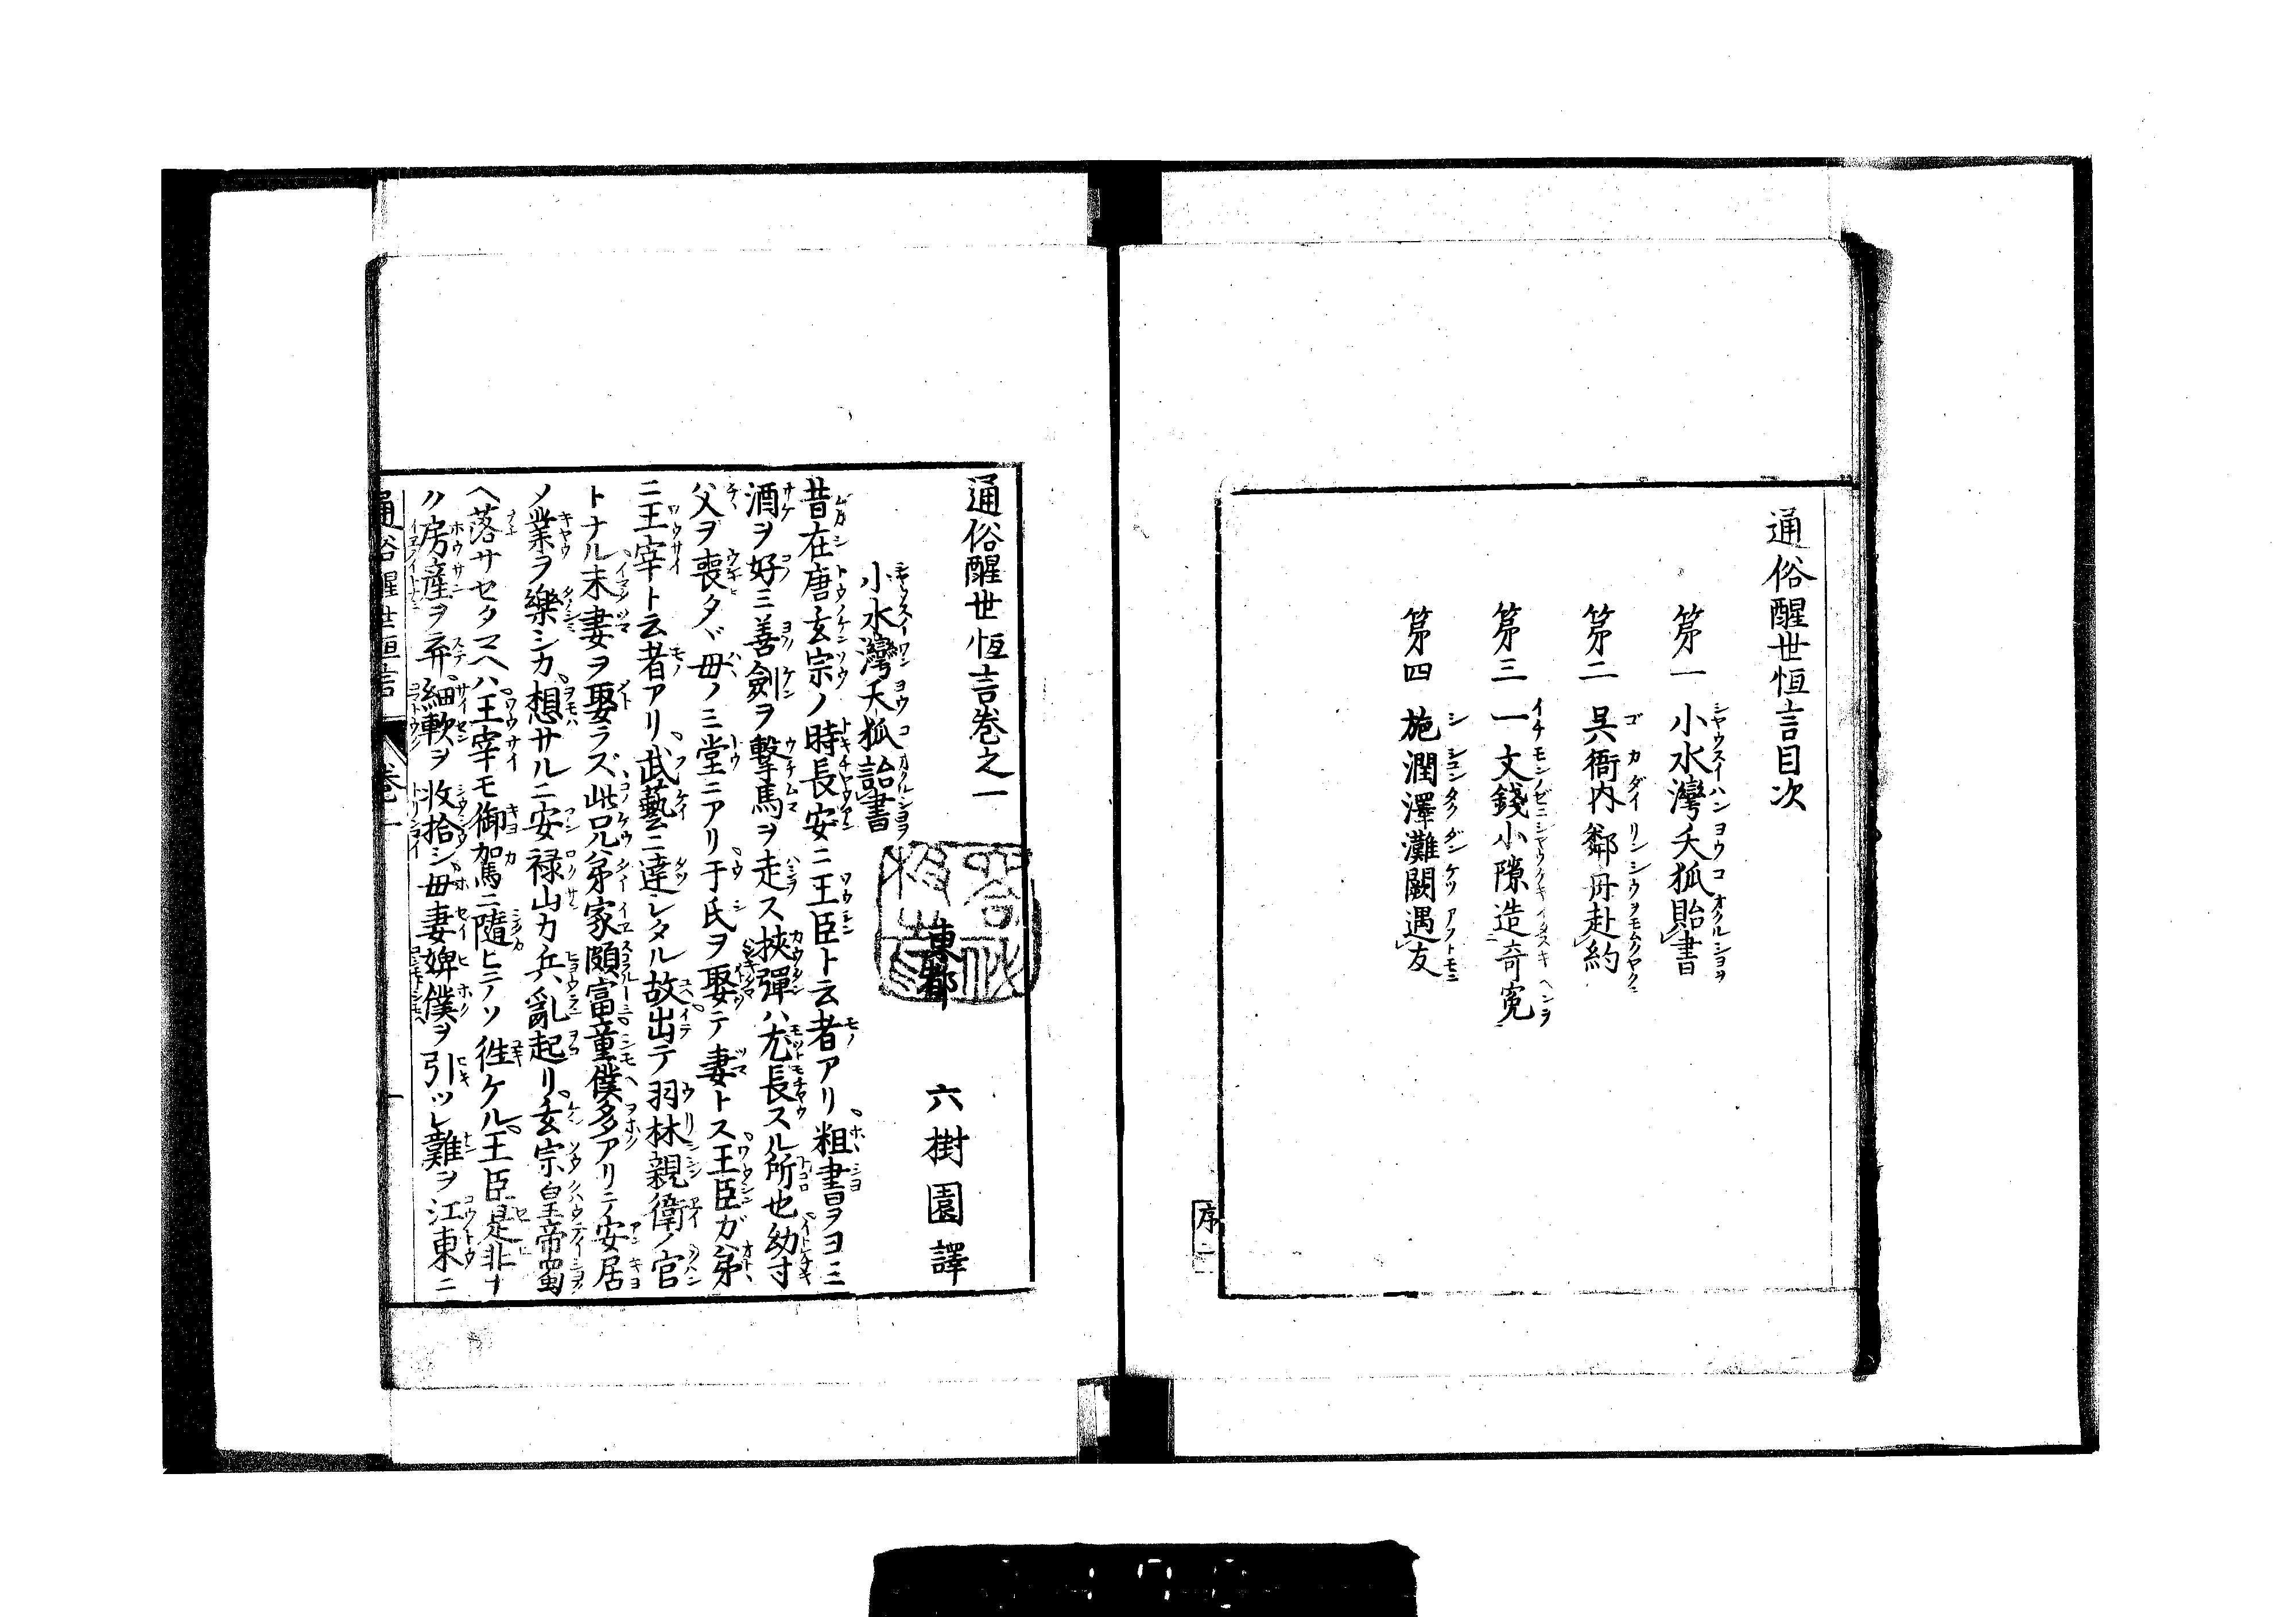 通俗醒世恒言目次
第一 小水灣夭狐貽書
第二 呉衙内鄰舟赴約
第三 一文錢小隙造奇寃
第四 施潤澤灘闕遇友
序二
通俗醒世恒言巻之一
東都 六樹園譯
小水灣夭狐詒書
昔在唐玄宗ノ時長安ニ王臣ト云者アリ粗書ヲヨミ
酒ヲ好ミ善劍ヲ擊馬ヲ走ス挾彈ハ尤長スル所也幼寸
父ヲ喪タヾ母ノミ堂ニアリ于氏ヲ娶テ妻トス王臣ガ弟
ニ王宰ト云者アリ武藝ニ達シタル故出テ羽林親衛ノ官
トナル未妻ヲ娶ラズ此兄弟家頗富童僕多アリテ安居
ノ業ヲ樂シカ想サルニ安禄山カ兵亂起リ玄宗皇帝蜀
ヘ落サセタマヘハ王宰モ御駕ニ隨ヒテソ徃ケル王臣是非ナ
ク房産ヲ弃細軟ヲ收拾シ母妻婢僕ヲ引ツレ難ヲ江東ニ
通俗醒世恒言 巻一 一